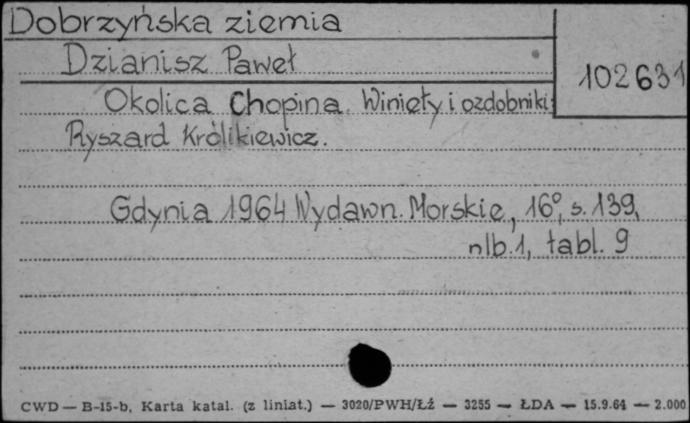 Dobrzyńska ziemia
Dzianisz Paweł
102631
Okolica Chopina. Winiety i ozdobniki:
Ryszard Królikiewicz.
Gdynia 1964 Wydawn. Morskie, 16°, s. 139,
nlb. 1, tabl. 9
CWD — B-15-b, Karta katal. (z liniat.) — 3020/PWH/Łź — 3255 — ŁDA — 15.9.64 — 2.000